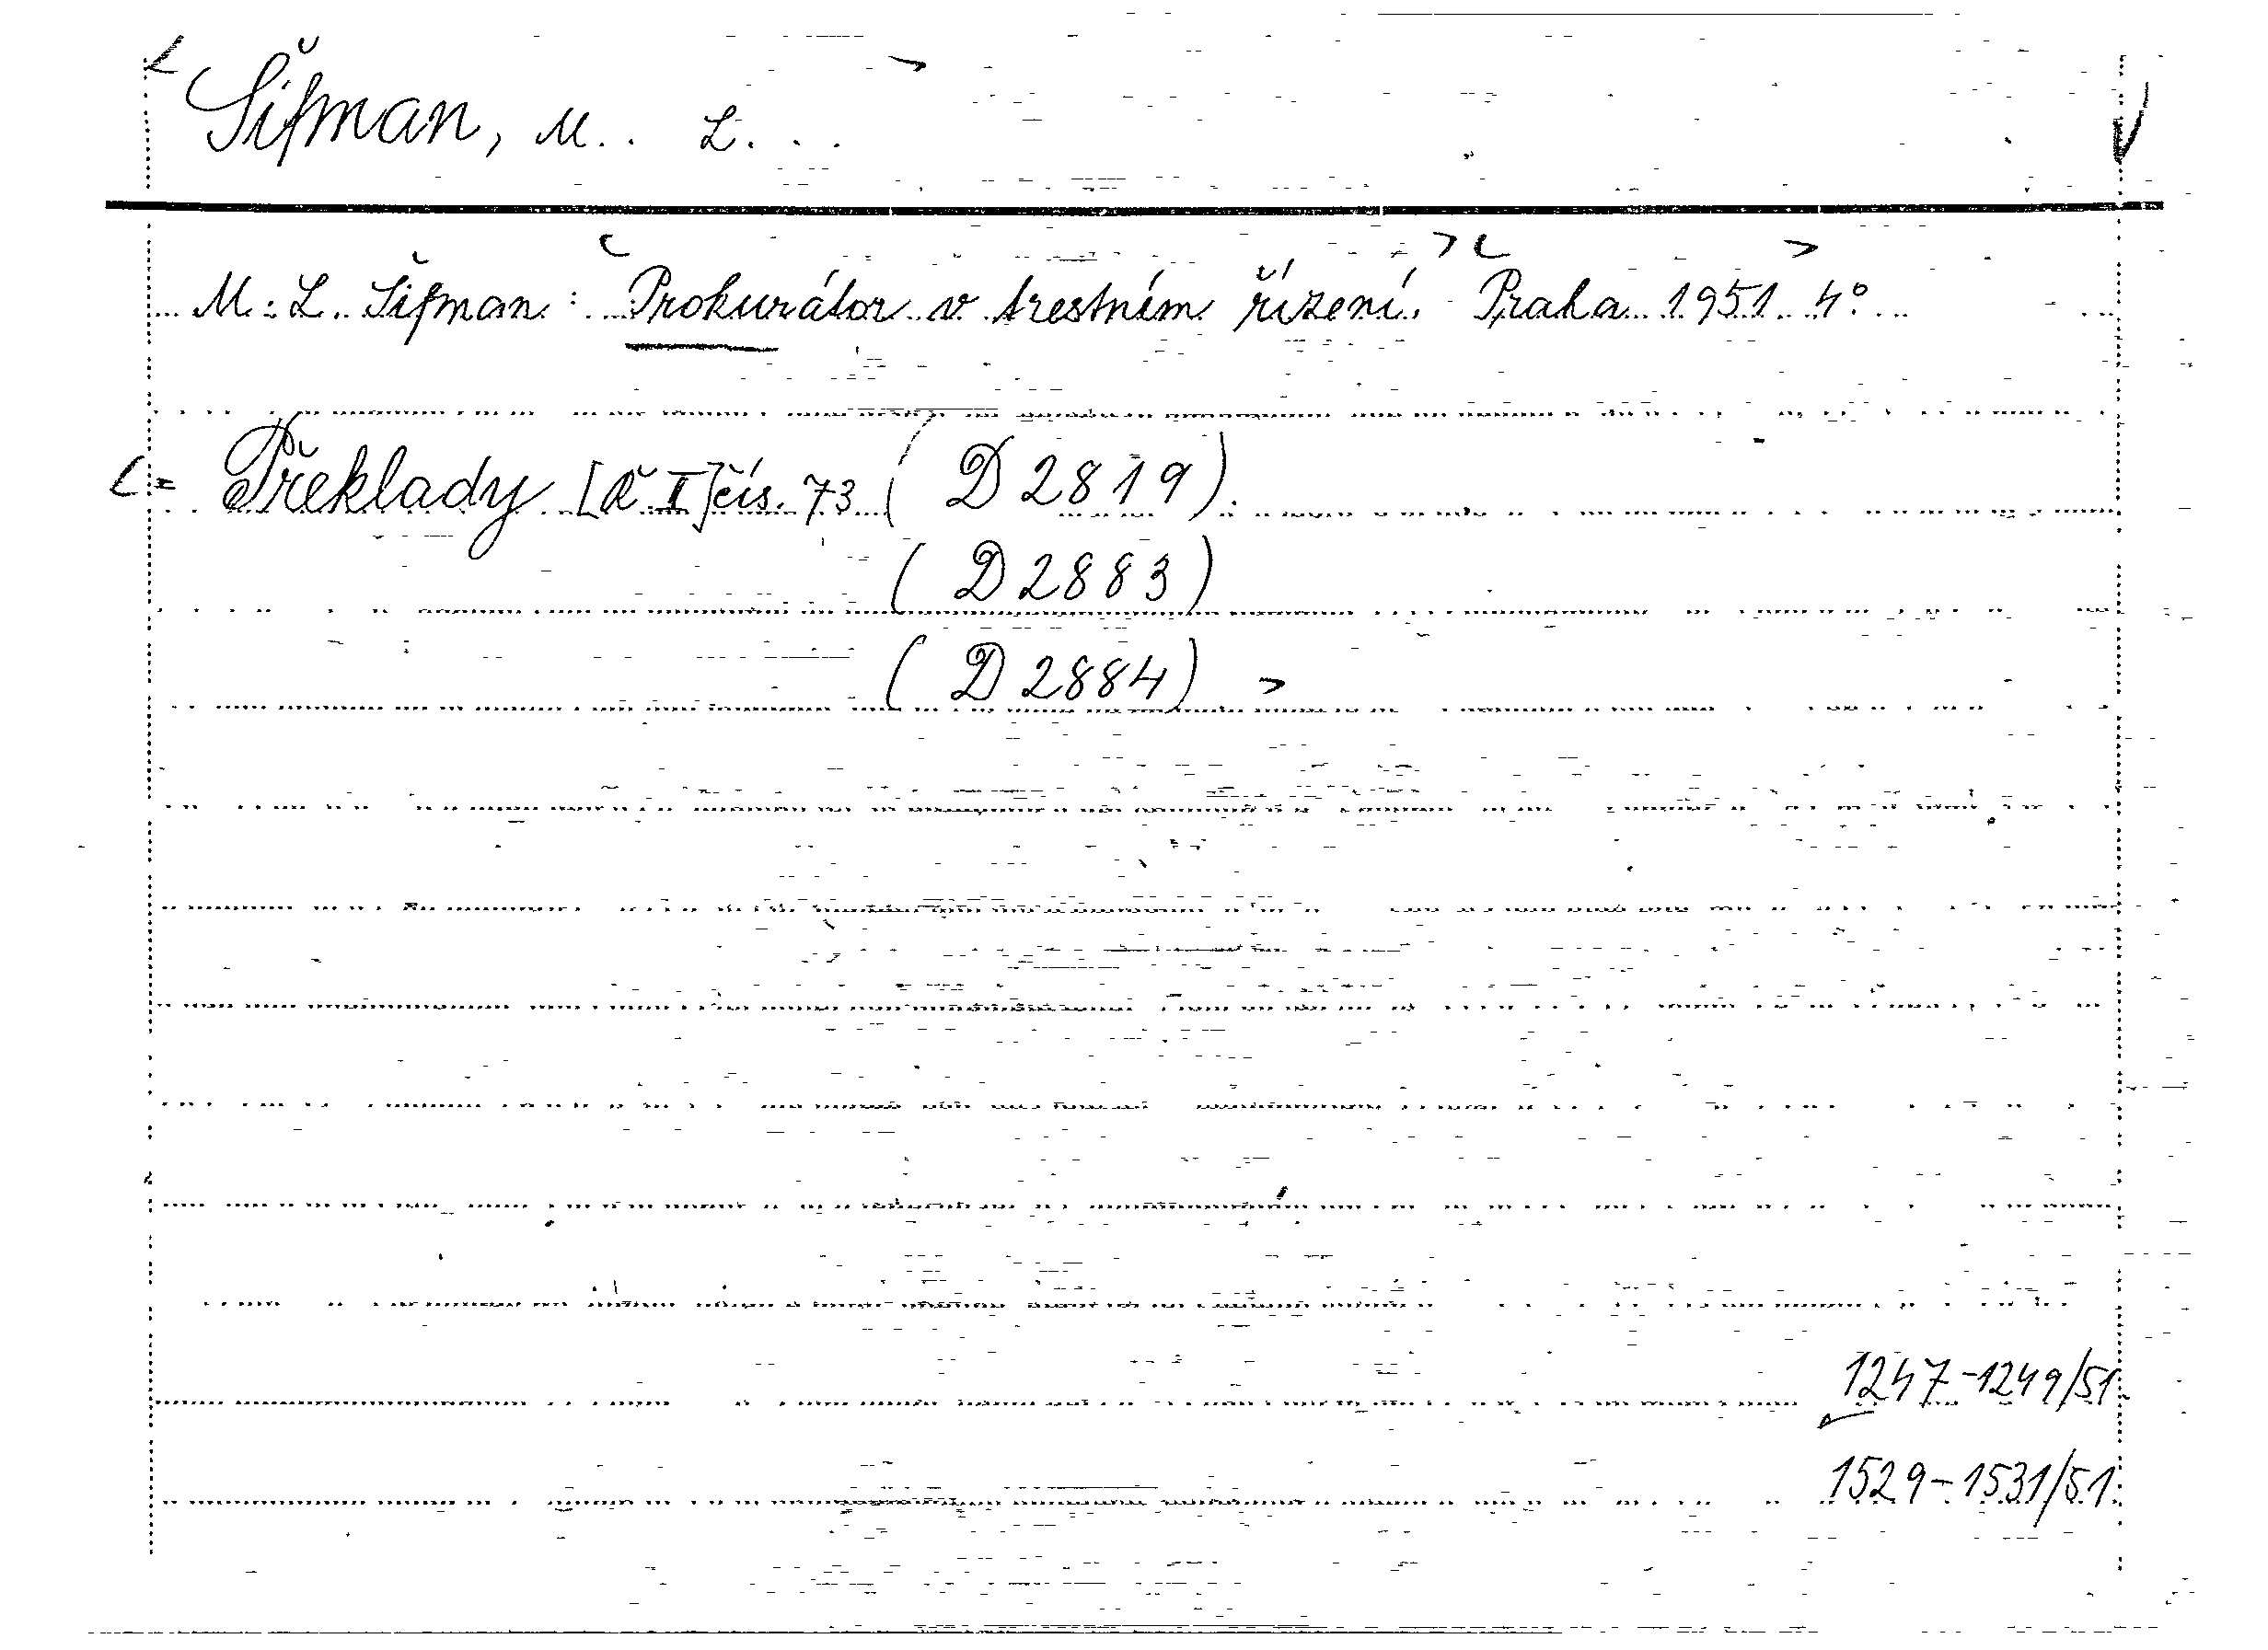 Šifman, M.. L...
M. L. Šifman: Prokurátor v trestném řízení. Praha 1951 4°.
= Překlady [Ř II] čís. 73 (D 2819).
(D 2883)
(D 2884)
1247-1249/51
1529-1531/51